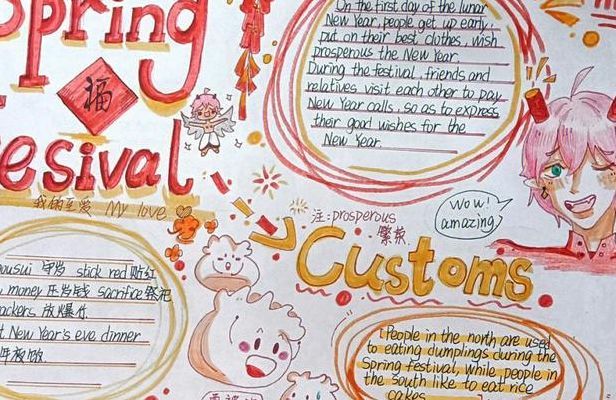 Spring
福
Fesival
我的至爱 My love
On the first day of the lunar
New Year, people get up early,
put on their best clothes, wish
prosperous the New Year.
During the festival, friends and
relatives visit each other to pay
New Year calls, so as to express
their good wishes for the
New Year.
注: prosperous
繁荣
wow!
amazing
Customs
守岁 stick red 贴红
money 压岁钱 sacrifice 祭祀
放爆竹
New Year's eve dinner
People in the north are used
to eating dumplings during the
Spring festival, while people in
the south like to eat rice
cakes